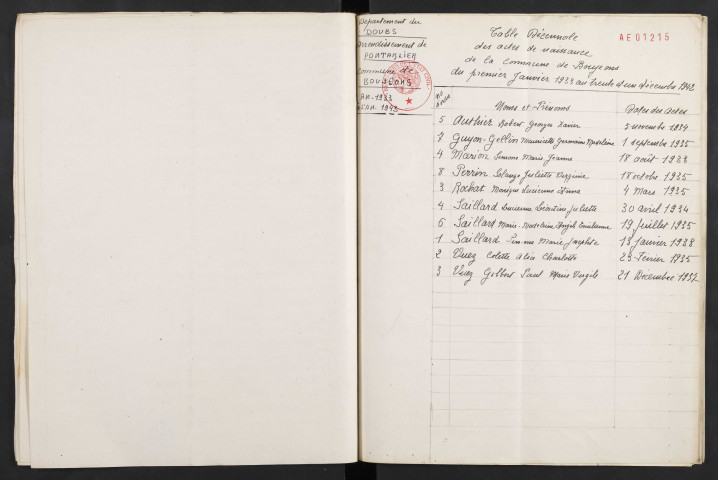 Département du
DOUBS
Arrondissement de
PONTARLIER
Commune de
BOUJEONS
AN. 1933
AN. 1942
Table Décennale
des actes de naissance
de la commune de Boujeons
du premier Janvier 1933 au trente et un décembre 1942
AE01215
Noms et Prénoms Dates des Actes
5 Authier Robert Georges Xavier 5 novembre 1934
7 Guyon-Gellin Mauricette Germaine Madeleine 1 septembre 1935
4 Marion Simone Marie Jeanne 18 août 1933
8 Perrin Solange Juliette Virginie 18 octobre 1935
3 Rochat Monique Lucienne 4 Mars 1935
4 Saillard Lucienne Léontine Juliette 30 avril 1934
6 Saillard Marie-Madeleine 19 Juillet 1935
1 Saillard Marie Josèphe 13 Janvier 1938
2 Vuez Colette Alice Charlotte 23 Février 1935
3 Vuez Gilbert Paul Marie Virgile 21 Décembre 1937